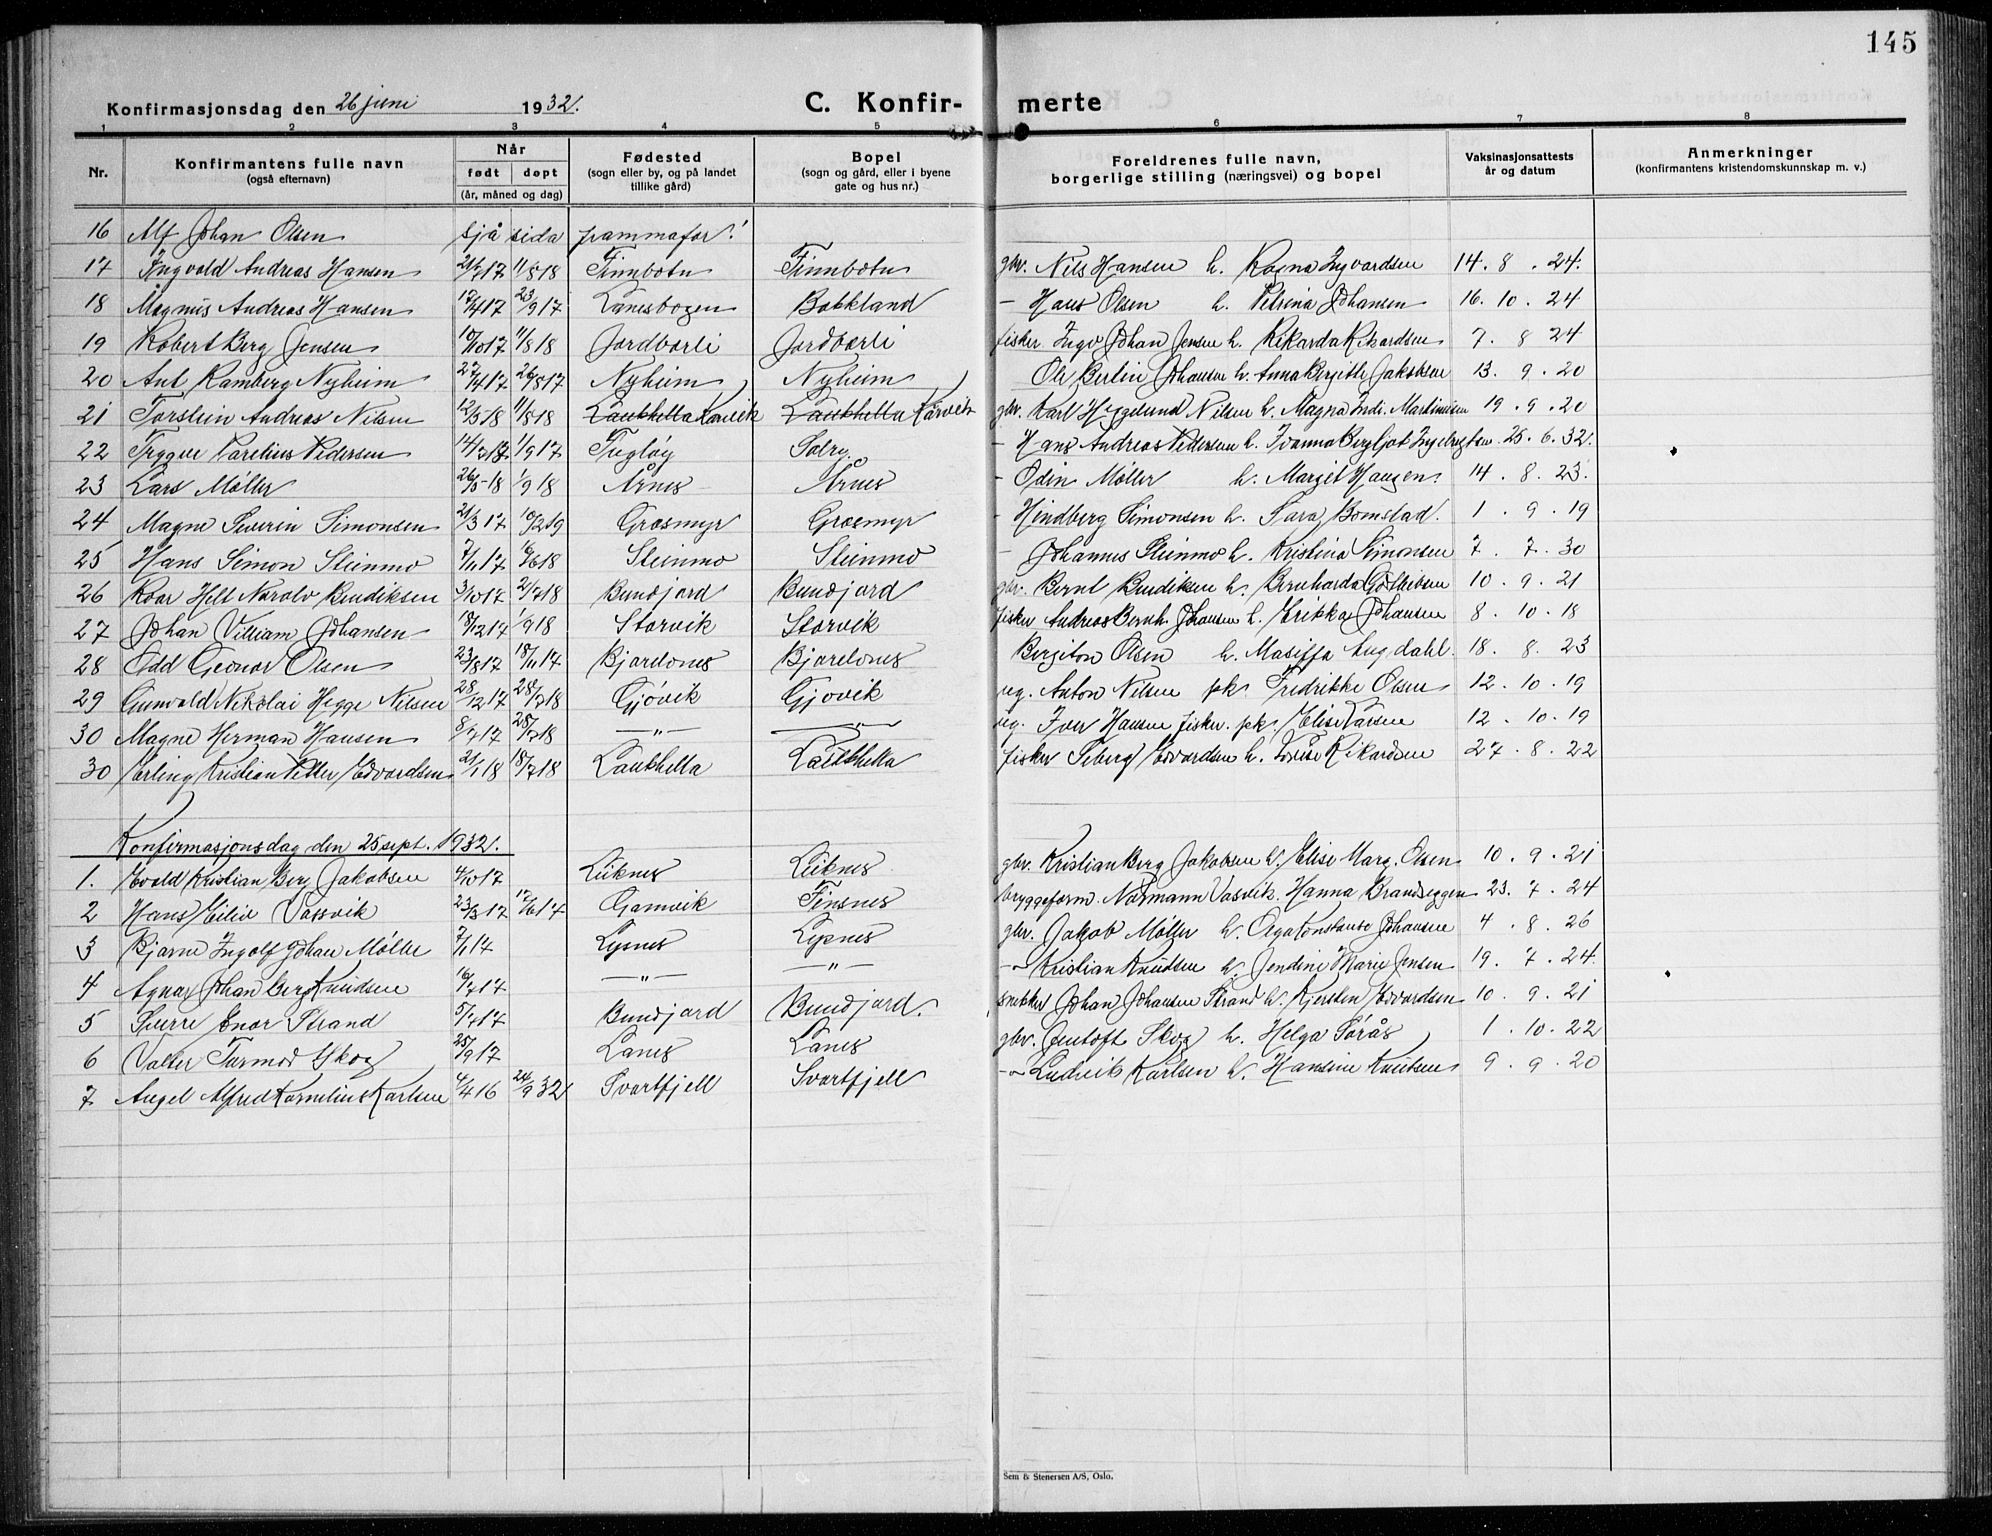 145
Konfirmasjonsdag den 26 juni 1932. C. Konfir- merte
1 2 3 4 5 6 7 8
Nr. Konfirmantens fulle navn (også efternavn) Når født døpt (år, måned og dag) Fødested (sogn eller by, og på landet tillike gård) Bopel (sogn og gård, eller i byene gate og hus nr.) Foreldrenes fulle navn, borgerlige stilling (næringsvei) og bopel Vaksinasjonsattests år og datum Anmerkninger (konfirmantens kristendomskunnskap m. v.)
16 Alf Johan Olsen sjå sida frammafor!
17 Ingvold Andreas Hansen 21/7 17 11/8 18 Finnbotn Finnbotn gbr. Nils Hansen h. Ragna Ingvardsen 14. 8. 24.
18 Magnus Andreas Hansen 17/4 17 23/9 17 Lanesbogen Bakkland - Hans Olsen h. Petrina Johansen 16. 10. 24
19 Robert Berg Jensen 10/10 17 11/8 18 Jordbærli Jordbærli fisker Ingv Johan Jensen h. Rikarda Rikardsen 7. 8 24
20 Ant Ramberg Nyheim 27/4 17 26/8 17 Nyheim Nyheim Ole Berlin Johansen h. Anna Bergitte Jakobsen 13. 9. 20
21 Torstein Andreas Nilsen 12/3 18 11/8 18 Laukhella Kårvik Laukhella Kårvik gbr. Karl Heggelund Nilsen h. Magna Indi. Martinusen 19. 9. 20
22 Trygve Parelius Pedersen 14/3 18 1/9 17 Fugløy Solry - Hans Andreas Pedersen h. Ivanna Bergljot Ingebrigtsen 25. 6. 32.
23 Lars Møller 26/5-18 1/9 18 Årnes Årnes - Odin Møller h. Margit Haugen 14. 8. 23.
24 Magne Severin Simonsen 21/3 17 10/2 19 Græsmyr Græsmyr - Hindberg Simonsen h. Sara Bomstad. 1. 9. 19
25 Hans Simon Steinmo 7/11 17 16/6 18 Steinmo Steinmo - Johannes Steinmo h. Kristina Simonsen 7. 7. 30
26 Roar Helt Narolv Bendiksen 3/10 17 21/7 18 Bundjord Bundjord gbr. Bernt Bendiksen h. Bernharda Gotlibsen 10. 9. 21
27 Johan Villiam Johansen 18/12 17 1/9 18 Storvik Storvik fisker Andreas Bernh. Johansen h. Erikka Johansen 8. 10. 18
28 Odd Geonor Olsen 23/8 17 18/11 17 Bjorelvnes Bjorelvnes Bergiton Olsen h. Masiffa Lugdahl. 18. 8. 23
29 Gunvald Nikolai Hegge Nilsen 28/12 17 28/7 18 Gjøvik Gjøvik ug. Anton Nilsen pk. Fredrikke Olsen 12. 10. 19
30 Magne Herman Hansen 8/7 17 28/7 18 —"— —"— ug. Iver Hansen fisker. pk. Elise Larsen 12. 10. 19
30 Erling Kristian Petter Edvardsen 21/1 18 18/7 18 Laukhella Laukhella fisker Seberg Edvardsen h. Lovise Rikardsen 27. 8. 22
Konfirmasjonsdag den 25 sept. 1932.
1. Evald Kristian Berg Jakobsen 4/10 17 Leiknes Leiknes gbr. Kristian Berg Jakobsen h. Elise Marg. Olsen 10. 9. 21
2 Hans Eiliv Vassvik 23/3 17 17/6 17 Gamvik Finsnes bryggeform. Normann Vasvik. Hanna Brandseggen 23. 7. 24
3 Bjarne Ingolf Johan Møller 7/1 17 Lysnes Lysnes gbr. Jakob Møller h. Aga Konstanse Johansen 4. 8. 26
4 Agnar Johan Berg Knudsen 16/7 17 —"— —"— —"— Kristian Knudsen h. Jendine Marie Jensen 19. 7. 24.
5 Sverre Enor Strand 5/7 17 Bundjord Bundjord. snekker Johan Johansen Strand h. Kjersten Edvardsen 10. 9. 21
6 Valter Tormod Skog 25/9 17 Lanes Lanes gbr. Jentoft Skog h. Helga Sørås 1. 10. 22
7 Angel Alfred Kornelius Karlsen 4/4 16 24/9 32 Svartfjell Svartfjell —"— Ludvik Karlsen h. Hansine Knutsen 9. 9. 20
Sem & Stenersen A/S, Oslo.